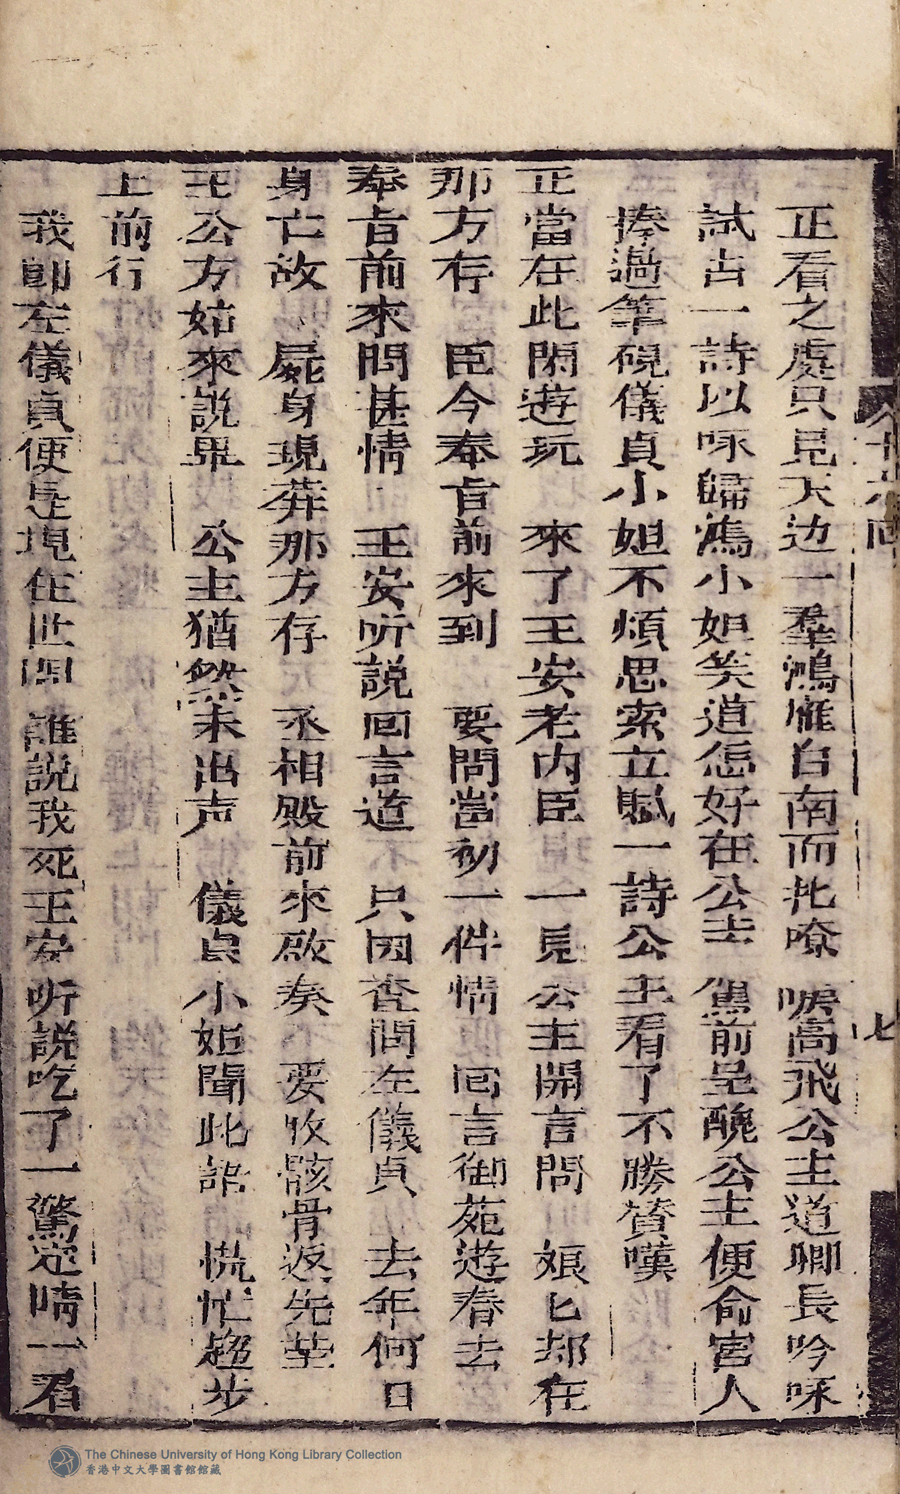 十六回
七
正看之處只見天边一羣鴻雁自南而北嘹唳高飛公主道卿長吟咏
試占一詩以咏歸鴻小姐笑道怎好在公主駕前呈醜公主便命宮人
捧過筆硯儀貞小姐不煩思索立賦一詩公主看了不勝贊嘆
正當在此閑遊玩 來了王安老内臣 一見公主開言問 娘匕却在
那方存 臣今奉旨前來到 要問當初一件情 囘言御苑遊春去
奉旨前來問甚情 王安听説囘言道 只因查問左儀貞 去年何日
身亡故 屍身現葬那方存 丞相殿前來啟奏 要收骸骨返先塋
王公方始來説畢 公主猶然未出声 儀貞小姐聞此語 慌忙趨步
上前行
我卽左儀貞便是現在世間誰説我死王安听説吃了一驚定睛一看
The Chinese University of Hong Kong Library Collection
香港中文大學圖書館館藏